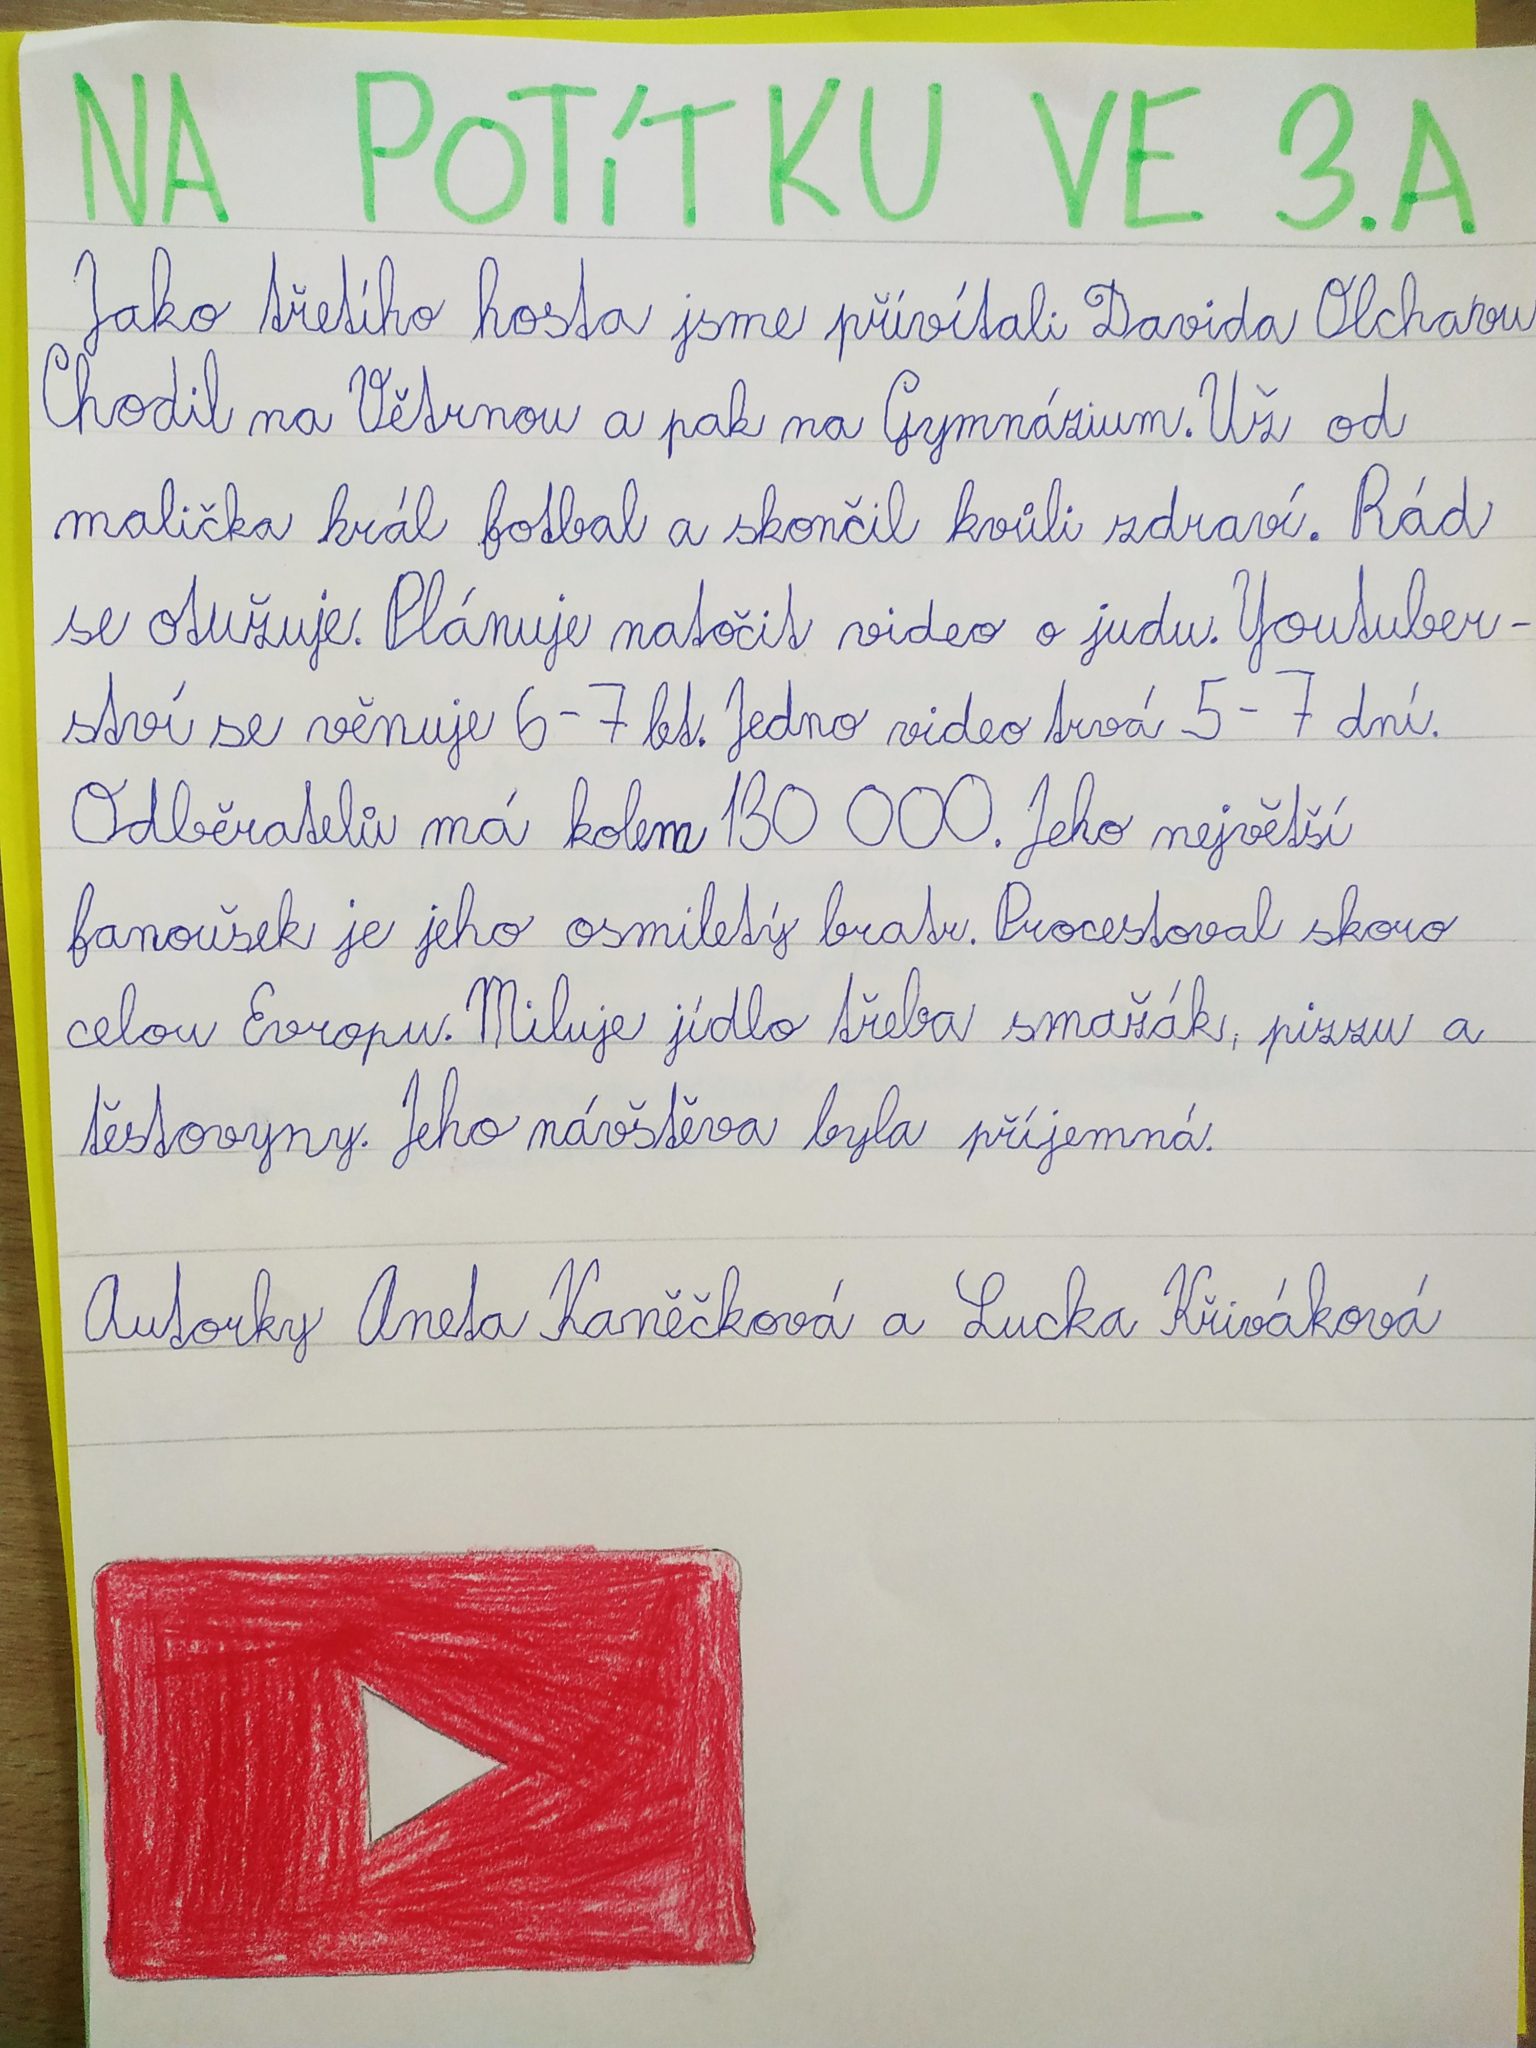 NA POTÍTKU VE 3.A
Jako třetího hosta jsme přívítali Davida Olchavu
Chodil na Větrnou a pak na Gymnázium. Už od
malička hrál fotbal a skončil kvůli zdraví. Rád
se otužuje. Plánuje natočit video o judu. Youtuber-
ství se věnuje 6-7 let. Jedno video trvá 5-7 dní.
Odběratelův má kolem 130 000. Jeho největší
fanoušek je jeho osmiletý bratr. Procestoval skoro
celou Evropu. Miluje jídlo třeba smažák, pizzu a
těstovyny. Jeho návštěva byla příjemná.
Autorky Aneta Kaněčková a Lucka Křiváková